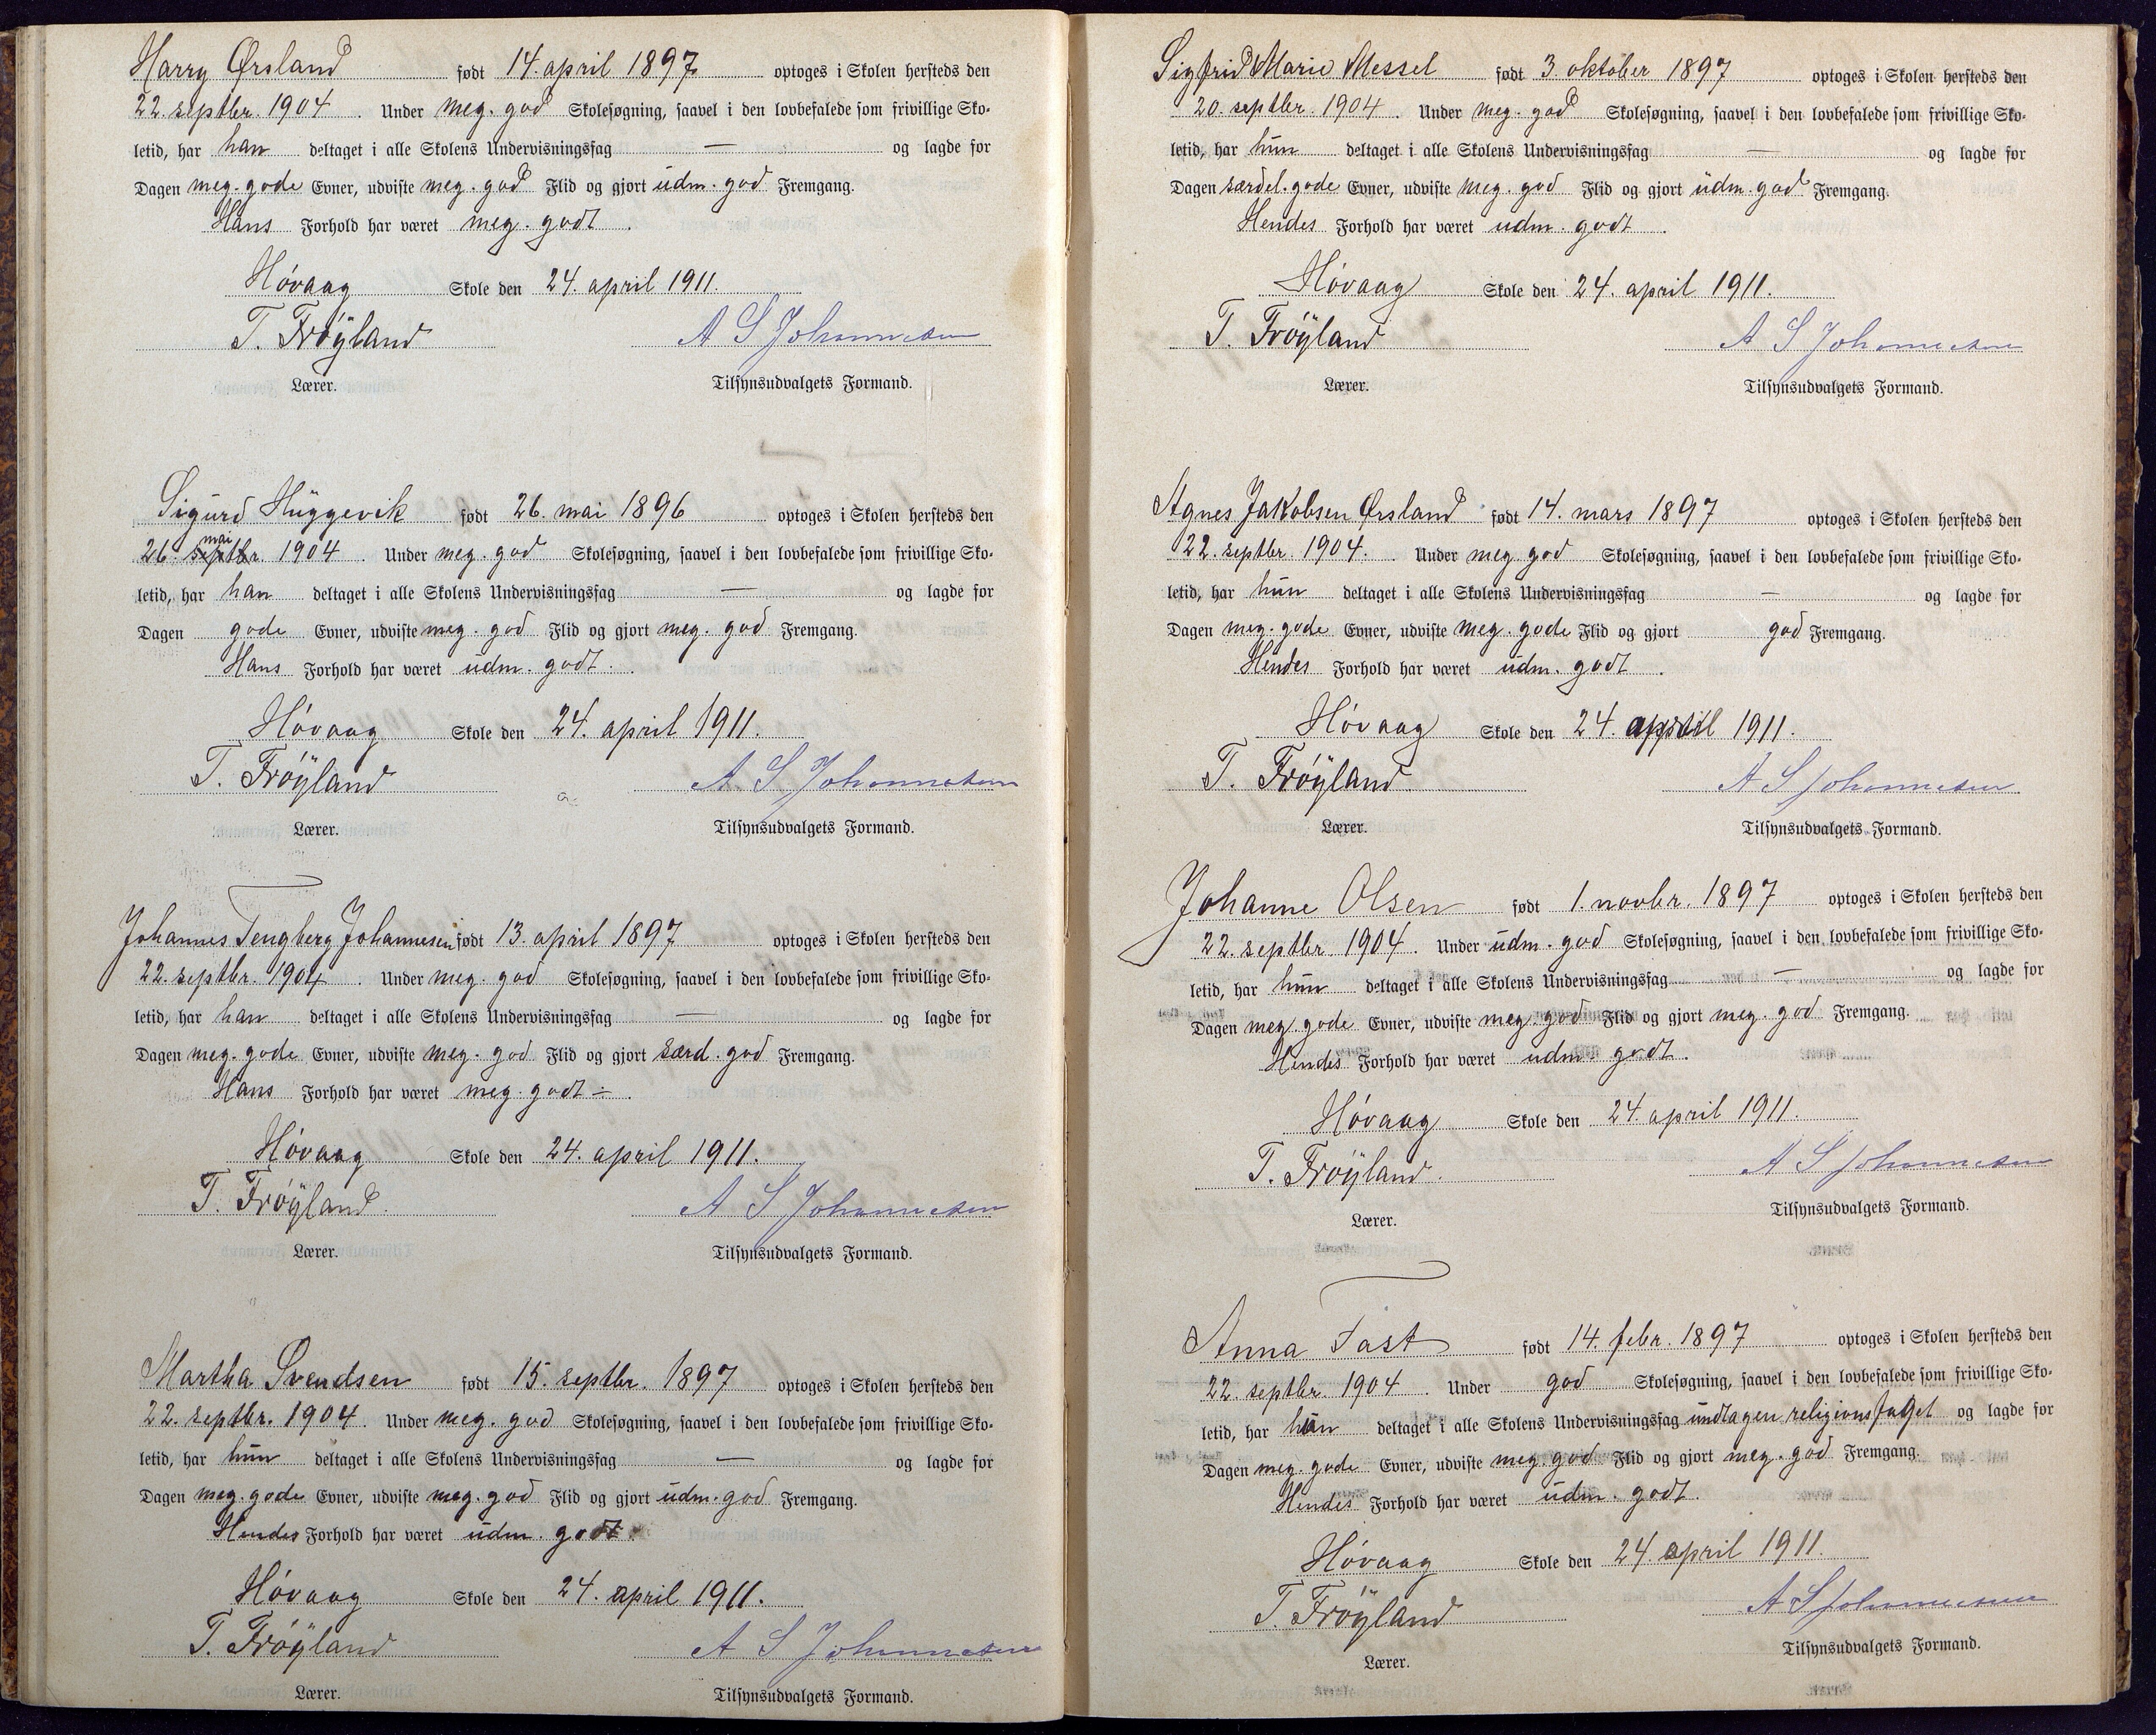 Harry Ørsland født 14. april 1897 optoges i Skolen hersteds den
22. septbr. 1904. Under meg. god Skolesøgning, saavel i den lovbefalede som frivillige Sko-
letid, har han deltaget i alle Skolens Undervisningsfag — og lagde for
Dagen meg. gode Evner, udviste meg. god Flid og gjort udm. god Fremgang.
Hans Forhold har været meg. godt.
Høvaag Skole den 24. april 1911.
T. Frøyland A S Johannesen
Lærer. Tilsynsudvalgets Formand.
Sigurd Huggevik født 26. mai 1896 optoges i Skolen hersteds den
mai
26. septbr. 1904. Under meg. god Skolesøgning, saavel i den lovbefalede som frivillige Sko-
letid, har han deltaget i alle Skolens Undervisningsfag — og lagde for
Dagen gode Evner, udviste meg. god Flid og gjort meg. god Fremgang.
Hans Forhold har været udm. godt.
Høvaag Skole den 24. april 1911.
T. Frøyland A S Johannesen
Lærer. Tilsynsudvalgets Formand.
Johannes Tengberg Johannesen født 13. april 1897 optoges i Skolen hersteds den
22. septbr. 1904. Under meg. god Skolesøgning, saavel i den lovbefalede som frivillige Sko-
letid, har han deltaget i alle Skolens Undervisningsfag — og lagde for
Dagen meg. gode Evner, udviste meg. god Flid og gjort særd. god Fremgang.
Hans Forhold har været meg. godt ÷.
Høvaag Skole den 24. april 1911.
T. Frøyland. A S Johannesen
Lærer. Tilsynsudvalgets Formand.
Martha Svendsen født 15. septbr. 1897 optoges i Skolen hersteds den
22. septbr. 1904. Under meg. god Skolesøgning, saavel i den lovbefalede som frivillige Sko-
letid, har hun deltaget i alle Skolens Undervisningsfag — og lagde for
Dagen meg. gode Evner, udviste meg. god Flid og gjort udm. god Fremgang.
Hendes Forhold har været udm. godt.
Høvaag Skole den 24. april 1911.
T. Frøyland A S Johannesen
Lærer. Tilsynsudvalgets Formand.
Sigfrid Marie Messel født 3 oktober 1897 optoges i Skolen hersteds den
20. septbr. 1904. Under meg. god Skolesøgning, saavel i den lovbefalede som frivillige Sko-
letid, har hun deltaget i alle Skolens Undervisningsfag — og lagde for
Dagen særdel. gode Evner, udviste meg. god Flid og gjort udm. god Fremgang.
Hendes Forhold har været udm. godt.
Høvaag Skole den 24. april 1911.
T. Frøyland A S Johannesen
Lærer. Tilsynsudvalgets Formand.
Agnes Jakobsen Ørsland født 14. mars 1897 optoges i Skolen hersteds den
22. septbr. 1904. Under meg. god Skolesøgning, saavel i den lovbefalede som frivillige Sko-
letid, har hun deltaget i alle Skolens Undervisningsfag — og lagde for
Dagen meg. gode Evner, udviste meg. gode Flid og gjort god Fremgang.
Hendes Forhold har været udm. godt.
Høvaag Skole den 24. april 1911.
T. Frøyland. A S Johannesen
Lærer. Tilsynsudvalgets Formand.
Johanne Olsen født 1. novbr. 1897 optoges i Skolen hersteds den
22. septbr. 1904. Under udm. god Skolesøgning, saavel i den lovbefalede som frivillige Sko-
letid, har hun deltaget i alle Skolens Undervisningsfag — og lagde for
Dagen meg. gode Evner, udviste meg. god Flid og gjort meg. god Fremgang.
Hendes Forhold har været udm. godt.
Høvaag Skole den 24. april 1911.
T. Frøyland. A S Johannesen
Lærer. Tilsynsudvalgets Formand.
Anna Fast født 14. febr. 1897 optoges i Skolen hersteds den
22. septbr. 1904. Under god Skolesøgning, saavel i den lovbefalede som frivillige Sko-
letid, har hun deltaget i alle Skolens Undervisningsfag undtagen religionsfaget og lagde for
Dagen meg. gode Evner, udviste meg. god Flid og gjort meg. god Fremgang.
Hendes Forhold har været udm. godt.
Høvaag Skole den 24. april 1911.
T. Frøyland A S Johannesen
Lærer. Tilsynsudvalgets Formand.